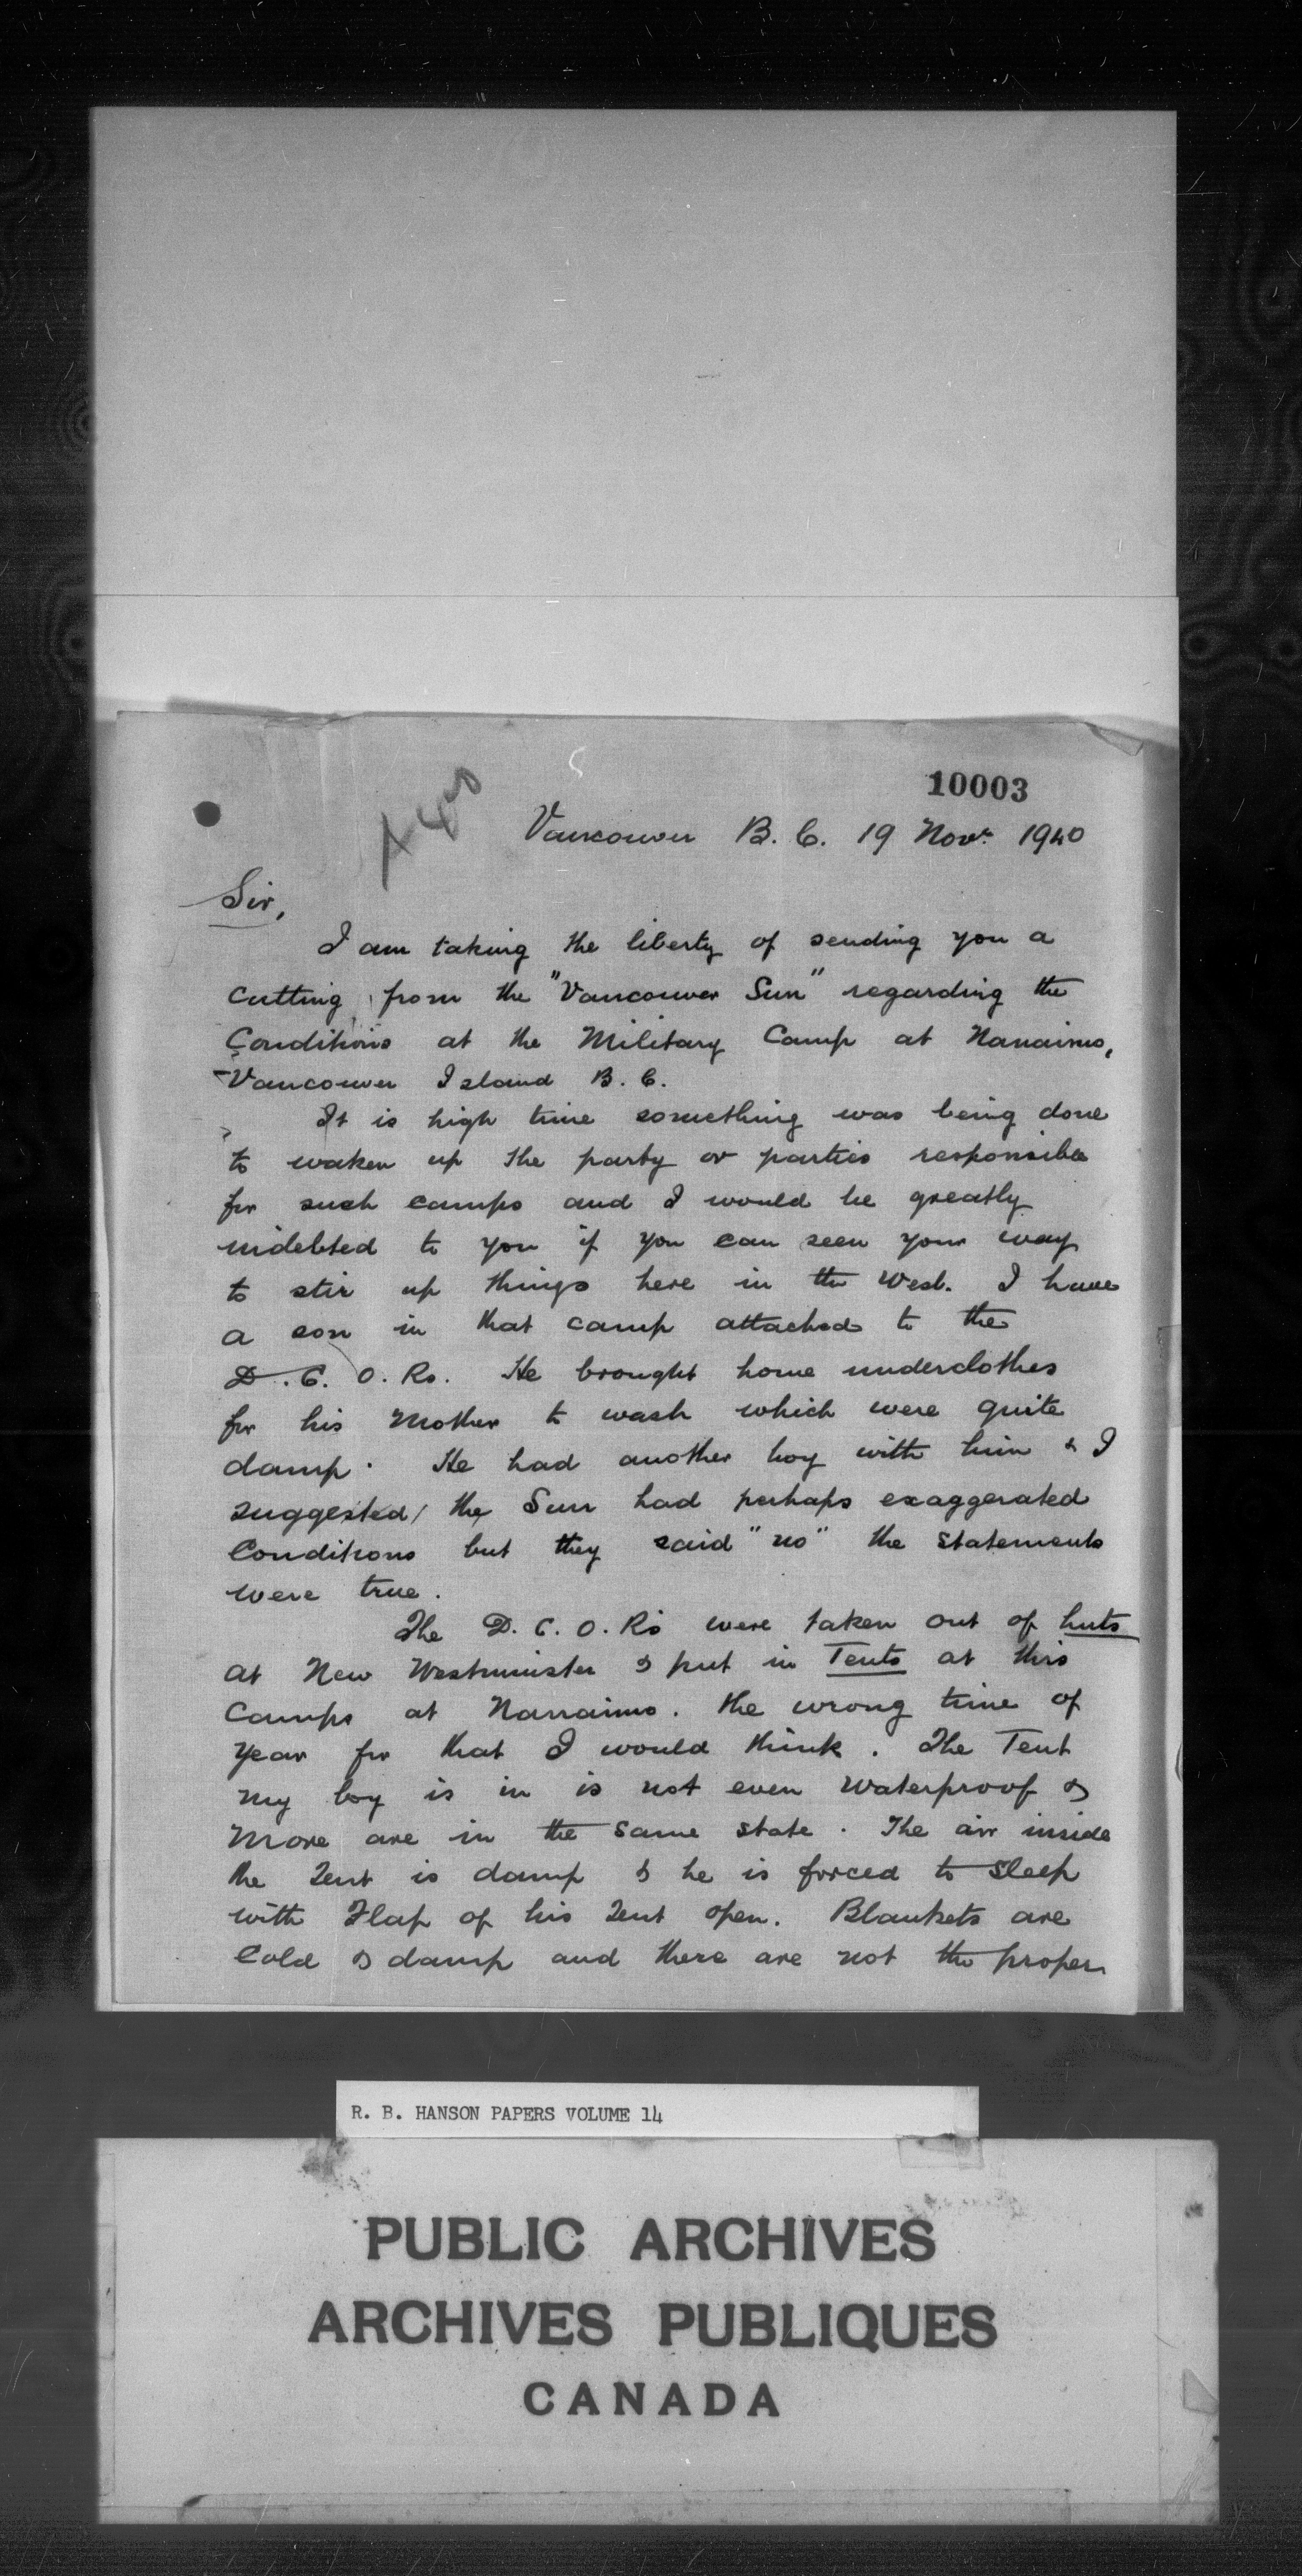 10003
Vancouver B. C. 19 Novr. 1940
Sir,
I am taking the liberty of sending you a
cutting from the "Vancouver Sun" regarding the
Conditions at the Military Camp at Nanaimo,
Vancouver Island B. C.
It is high time something was being done
to waken up the party or parties responsible
for such camps and I would be greatly
indebted to you if you can seen your way
to stir up things here in the West. I have
a son in that camp attached to the
D. C. O. Rs. He brought home underclothes
for his Mother to wash which were quite
damp. He had another boy with him & I
suggested the Sun had perhaps exaggerated
Conditions but they said "no" the statements
were true.
The D. C. O. Rs were taken out of huts
at New Westminster & put in Tents at this
Camps at Nanaimo. The wrong time of
year for that I would think. The Tent
my boy is in is not even waterproof &
More are in the same state. The air inside
the Tent is damp & he is forced to sleep
with Flap of his Tent open. Blankets are
Cold & damp and there are not the proper
R. B. HANSON PAPERS VOLUME 14
PUBLIC ARCHIVES
ARCHIVES PUBLIQUES
CANADA